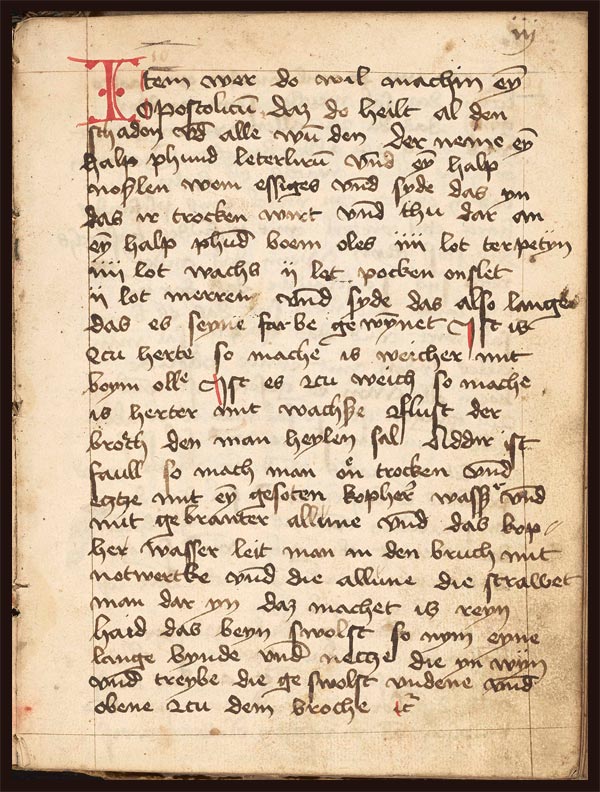 iij
Item wer do wil machin eȳ
opostolicū daz do heilt al den
schaden vn̄d alle wūden der neme eȳ
halp phund leterlurū vn̄d eȳ halp
noslen wein essiges vn̄d syde das yn
das ir trocken wirt vn̄d thu dar an
eȳ halp phūd boem oles iiii lot terpetyn
iiii lot wachs ij lot pocken onslet
ij lot merren vn̄d syde das also lange
das es seyne farbe gewȳnet Ist is
czu herte so mache is weicher mit
boym olle Ist es czu weich so mache
is herter mit wachsze flust der
broch den man heylen sal Addir ist
faull so mach man on trocken vn̄d
mit eȳ gesoten kopher wasser vn̄d
mit gebranter allune vn̄d das kop
her wasser leit man in den bruch mit
notwertke vn̄d die allune die strawet
man dar yn daz machet is reyn
haid das beyn swolst so nym eyne
lange bynde vnd netcze die yn wyn
vn̄d treybe die geswolst vndene vn̄d
obene czu dem broche